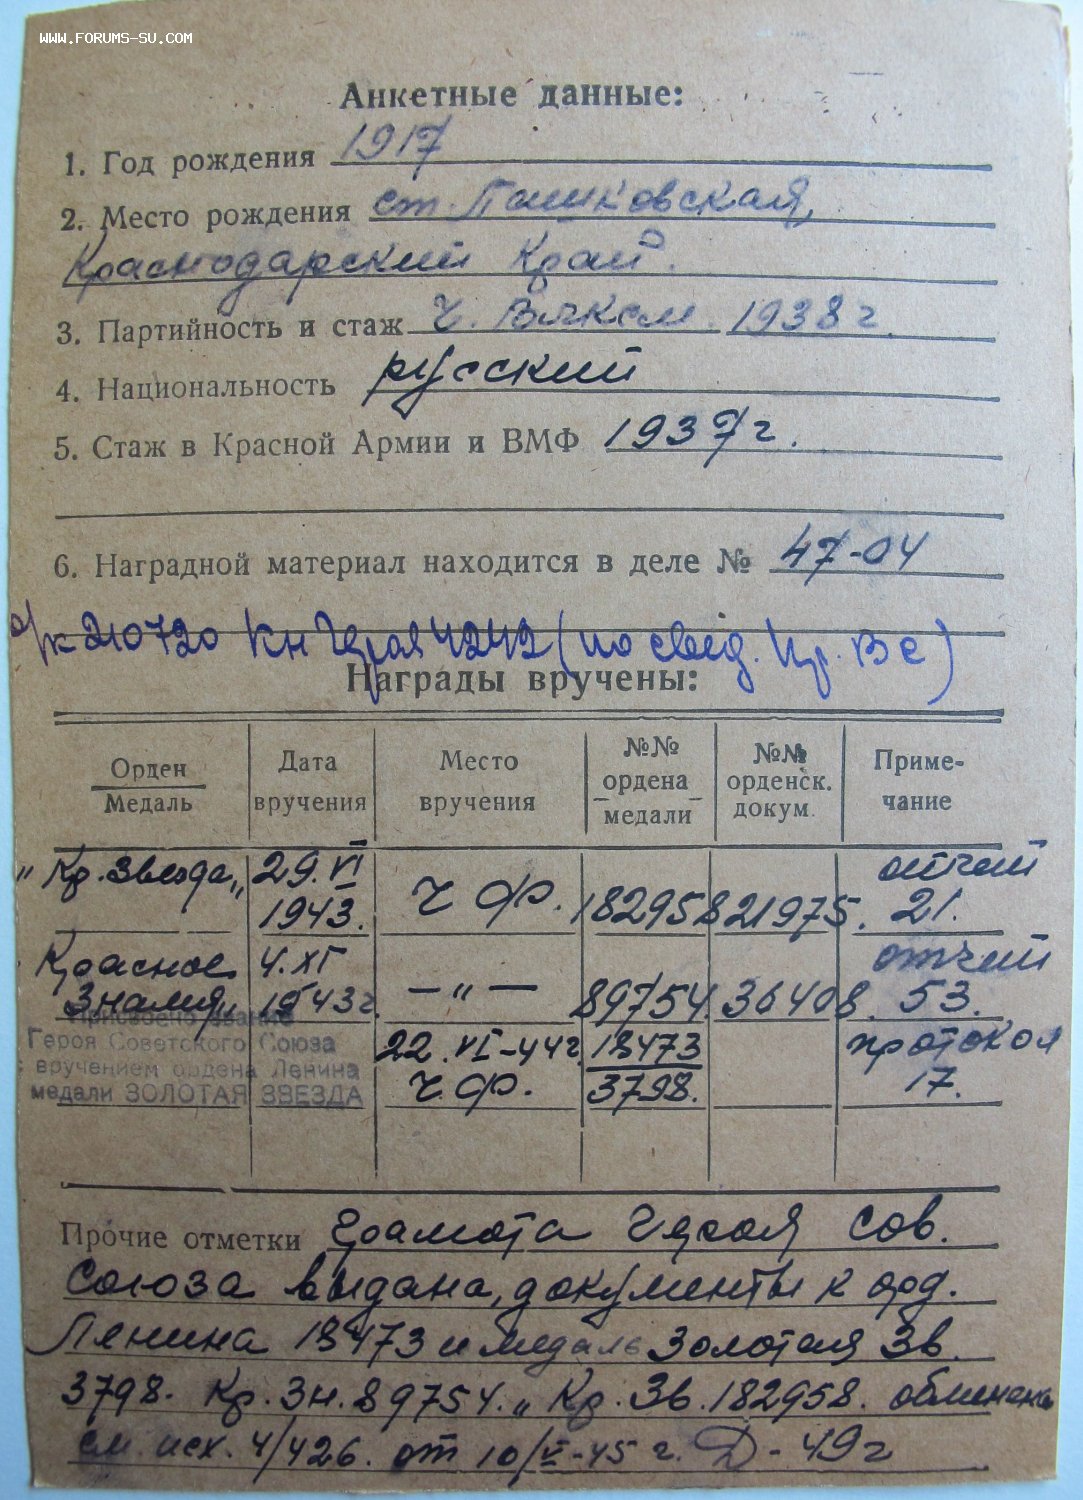 WWW.FORUMS-SU.COM
Анкетные данные:
1. Год рождения 1917
2. Место рождения ст. Пашковская,
Краснодарский Край.
3. Партийность и стаж ч. Влксм. 1938 г.
4. Национальность русский
5. Стаж в Красной Армии и ВМФ 1937 г.
6. Наградной материал находится в деле № 47-04
о/к 210720 Кн Героя 4242 (по свед. Пр. ВС)
Награды вручены:
Орден
Медаль
Дата
вручения
Место
вручения
№№
ордена
медали
№№
орденск.
докум.
Приме-
чание
"Кр. Звезда" 29.VI 1943. ч ф. 182958 821975. отчет 21.
Красное Знамя" 4.XI 1943 г. — " — 89754. 36408. отчет 53.
Присвоено звание
Героя Советского Союза
с вручением ордена Ленина
медали ЗОЛОТАЯ ЗВЕЗДА
22.VI-44 г. ч.ф. 18473 3798. протокол 17.
Прочие отметки Грамота Героя Сов.
Союза выдана, документы к орд.
Ленина 18473 и медаль Золотая Зв.
3798. Кр. Зн. 89754. " Кр. Зв. 182958. обменены
см. исх. 4/426. от 10/V-45 г. Д-49 г